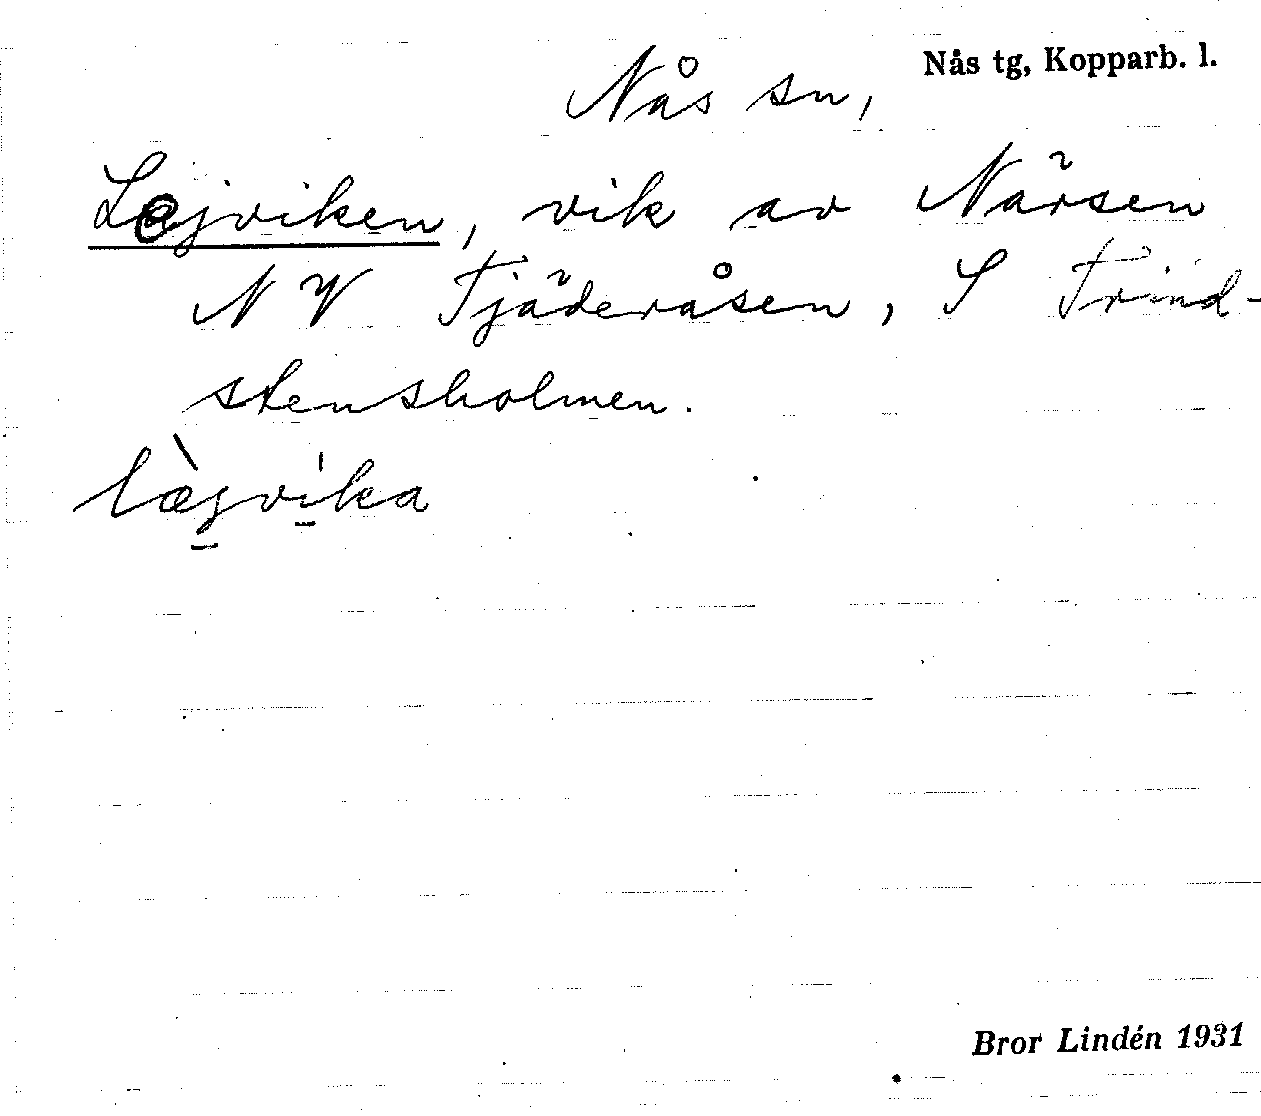 Nås tg, Kopparb. l.
Nås sn,
Lejviken, vik av Närsen
NV Tjäderåsen, S Trind-
stensholmen.
læ̀jvika
Bror Lindén 1931